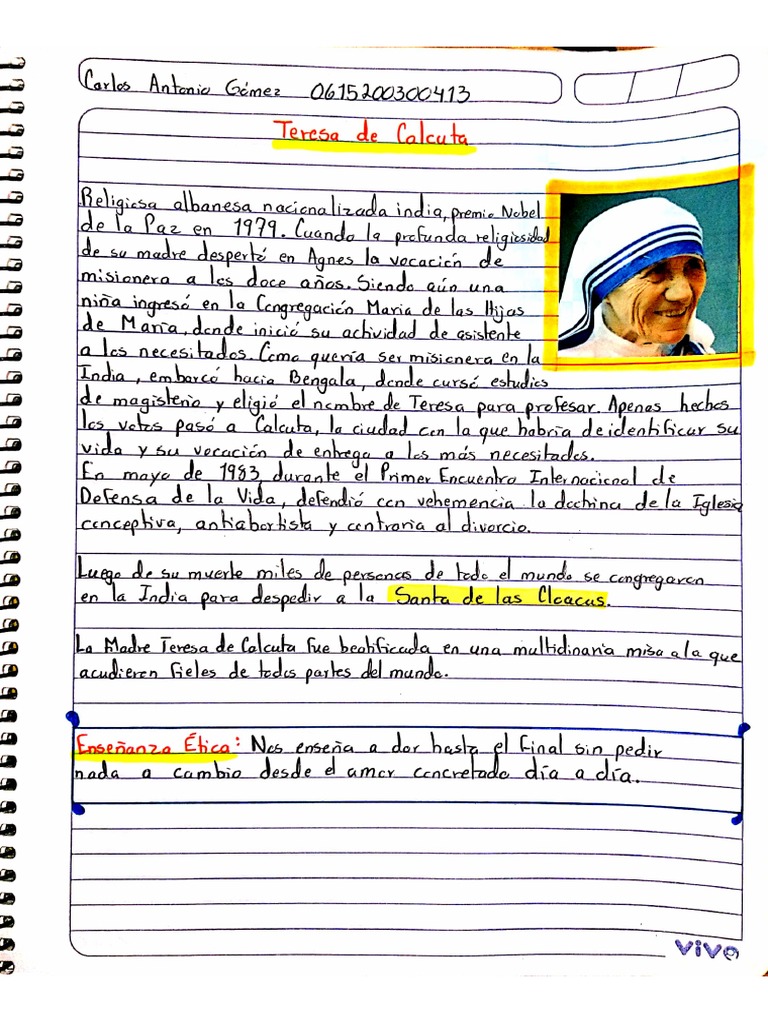 Carlos Antonio Gómez 0615200300413
Teresa de Calcuta
Religiosa albanesa nacionalizada india, premio Nobel
de la Paz en 1979. Cuando la profunda religiosidad
de su madre despertó en Agnes la vocación de
misionera a los doce años. Siendo aún una
niña ingresó en la Congregación Mariana de las Hijas
de María, donde inició su actividad de asistente
a los necesitados. Como quería ser misionera en la
India, embarcó hacia Bengala, donde cursó estudios
de magisterio y eligió el nombre de Teresa para profesar. Apenas hechos
los votos pasó a Calcuta, la ciudad con la que habría de identificar su
vida y su vocación de entrega a los más necesitados.
En mayo de 1983, durante el Primer Encuentro Internacional de
Defensa de la Vida, defendió con vehemencia la doctrina de la Iglesia
conceptiva, antiabortista y contraria al divorcio.
Luego de su muerte miles de personas de todo el mundo se congregaron
en la India para despedir a la Santa de las Cloacas.
La Madre Teresa de Calcuta fue beatificada en una multidinaria misa a la que
acudieron fieles de todas partes del mundo.
Enseñanza Ética: Nos enseña a dar hasta el final sin pedir
nada a cambio desde el amor concretado día a día.
vivo